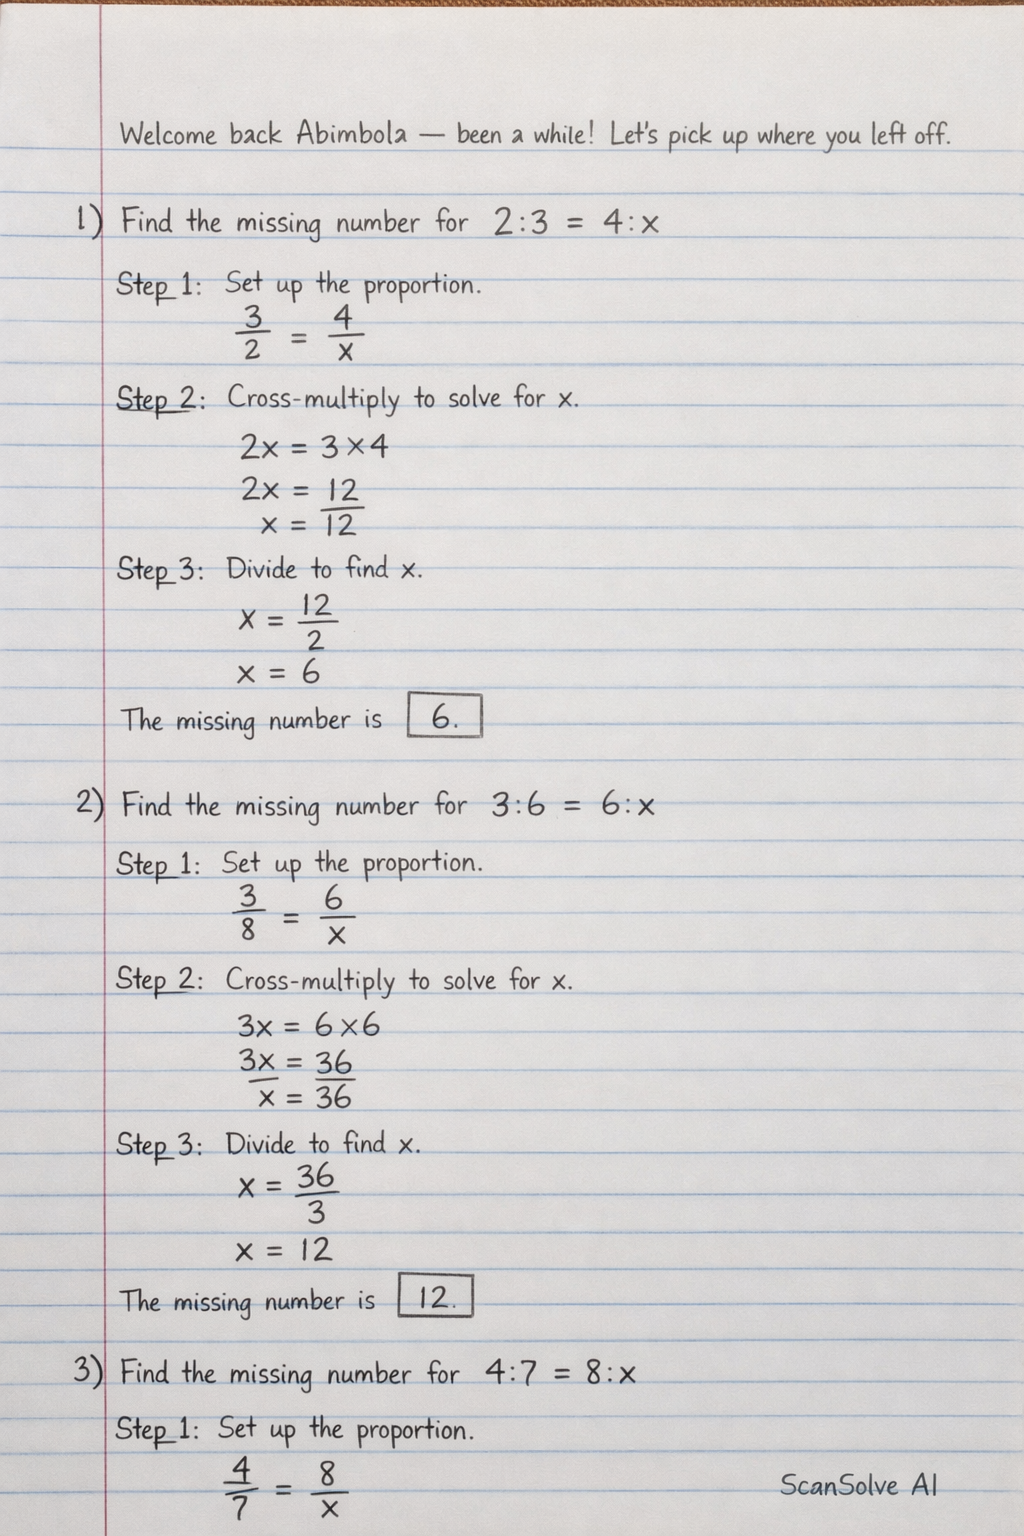 Welcome back Abimbola — been a while! Let's pick up where you left off.
1) Find the missing number for 2:3 = 4:x
Step 1: Set up the proportion.
3/2 = 4/x
Step 2: Cross-multiply to solve for x.
2x = 3×4
2x = 12
x = 12
Step 3: Divide to find x.
x = 12/2
x = 6
The missing number is 6.
2) Find the missing number for 3:6 = 6:x
Step 1: Set up the proportion.
3/8 = 6/x
Step 2: Cross-multiply to solve for x.
3x = 6×6
3x = 36
x = 36
Step 3: Divide to find x.
x = 36/3
x = 12
The missing number is 12.
3) Find the missing number for 4:7 = 8:x
Step 1: Set up the proportion.
4/7 = 8/x
ScanSolve AI